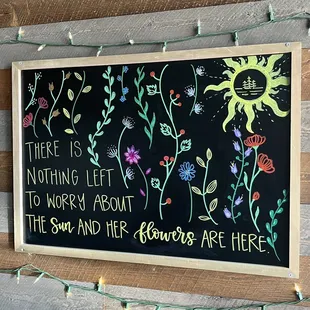 THERE IS
NOTHING LEFT
TO WORRY ABOUT
THE Sun AND HER flowers ARE HERE.